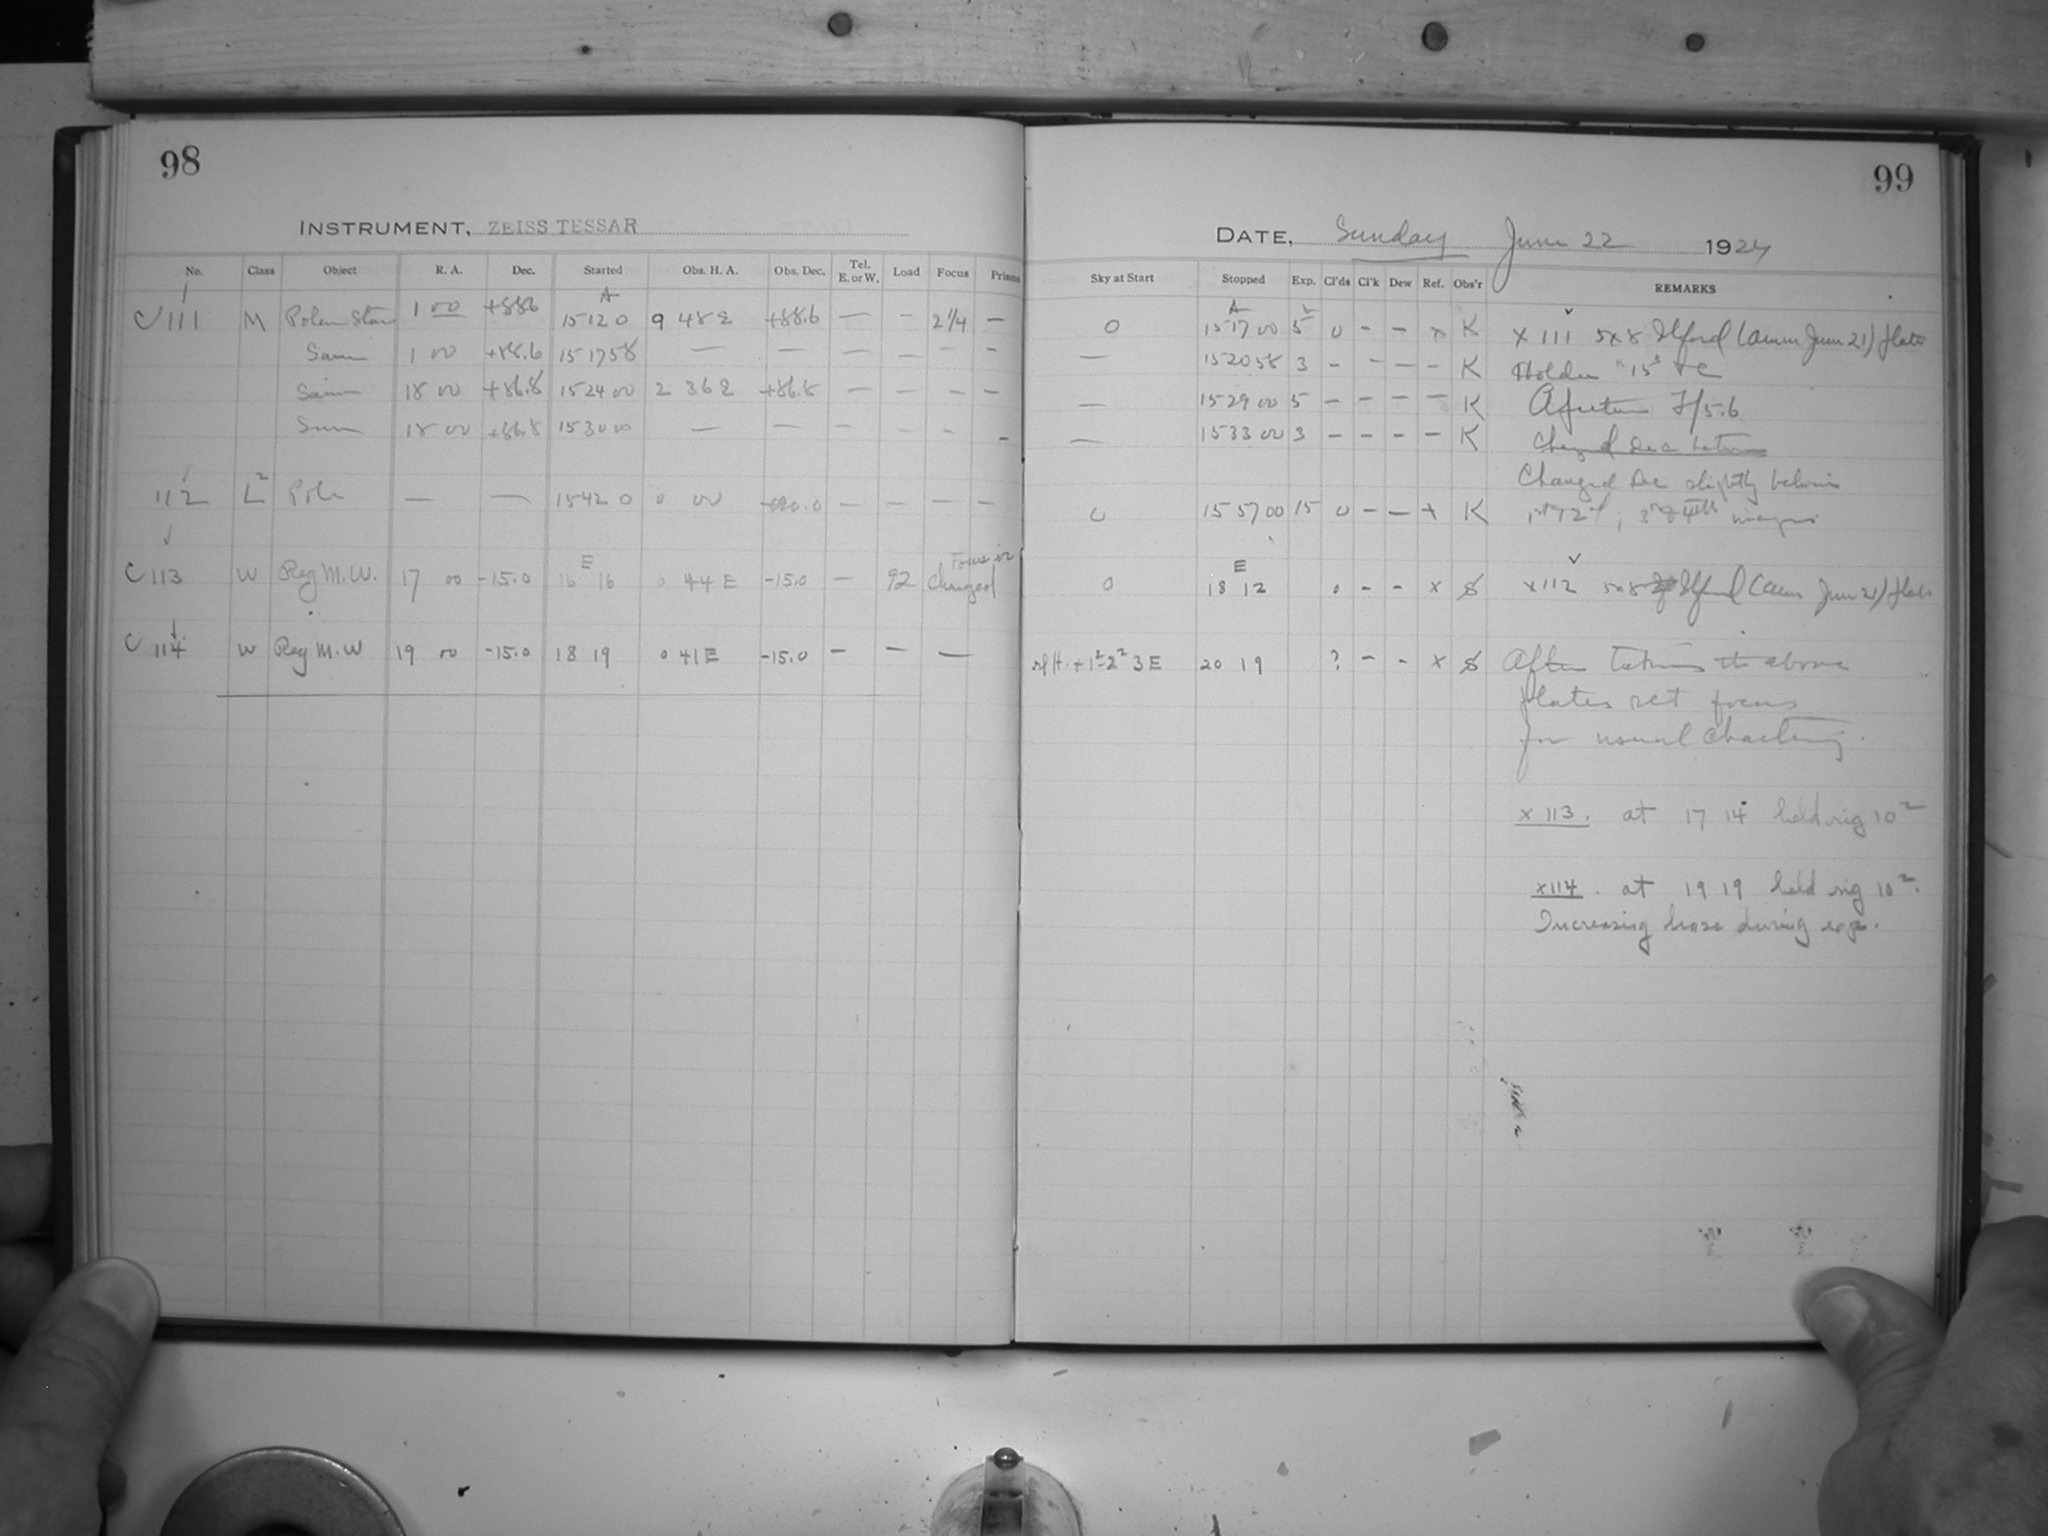 98
INSTRUMENT, ZEISS TESSAR
No. Class Object R. A. Dec. Started Obs. H. A. Obs. Dec. Tel. E. or W. Load Focus Prisms
C 111 M Polar Star 1 00 +88.6 A 15 12 0 9 48 E +88.6 — - 2 1/4 —
Same 1 00 +88.6 15 17 58 — — — — - -
Same 18 00 +86.8 15 24 00 2 36 E +86.8 — — — —
Same 18 00 +86.8 15 30 00 — — - — - -
112 L2 Pole — — 15 42 0 0 00 +90.0 — — — —
C 113 W Reg M. W. 17 00 -15.0 E 16 16 0 44 E -15.0 — 92 Focus changed
C 114 W Reg M. W 19 00 -15.0 18 19 0 41 E -15.0 — — —
99
DATE, Sunday June 22 1924
Sky at Start Stopped Exp. Cl'ds Cl'k Dew Ref. Obs'r REMARKS
0 A 15 17 00 5 0 - - x K x 111 5x8 Ilford (amm June 21) plate
— 15 20 58 3 - - — - K Holder "15"
— 15 29 00 5 - - - - K Aperture F/5.6
— 15 33 00 3 - - - - K Changed Dec between
Changed Dec slightly between
0 15 57 00 15 0 - — x K 1st & 2d, 3rd & 4th images
0 E 18 12 0 - - x $ x 112 5x8 Ilford (amm June 21) plate
+1²-2² 3 E 20 19 ? - - x $ After taking the above
plates set focus
for usual charting.
x 113. at 17 14 held rig 10²
x 114. at 19 19 held rig 10².
Increasing haze during exp.